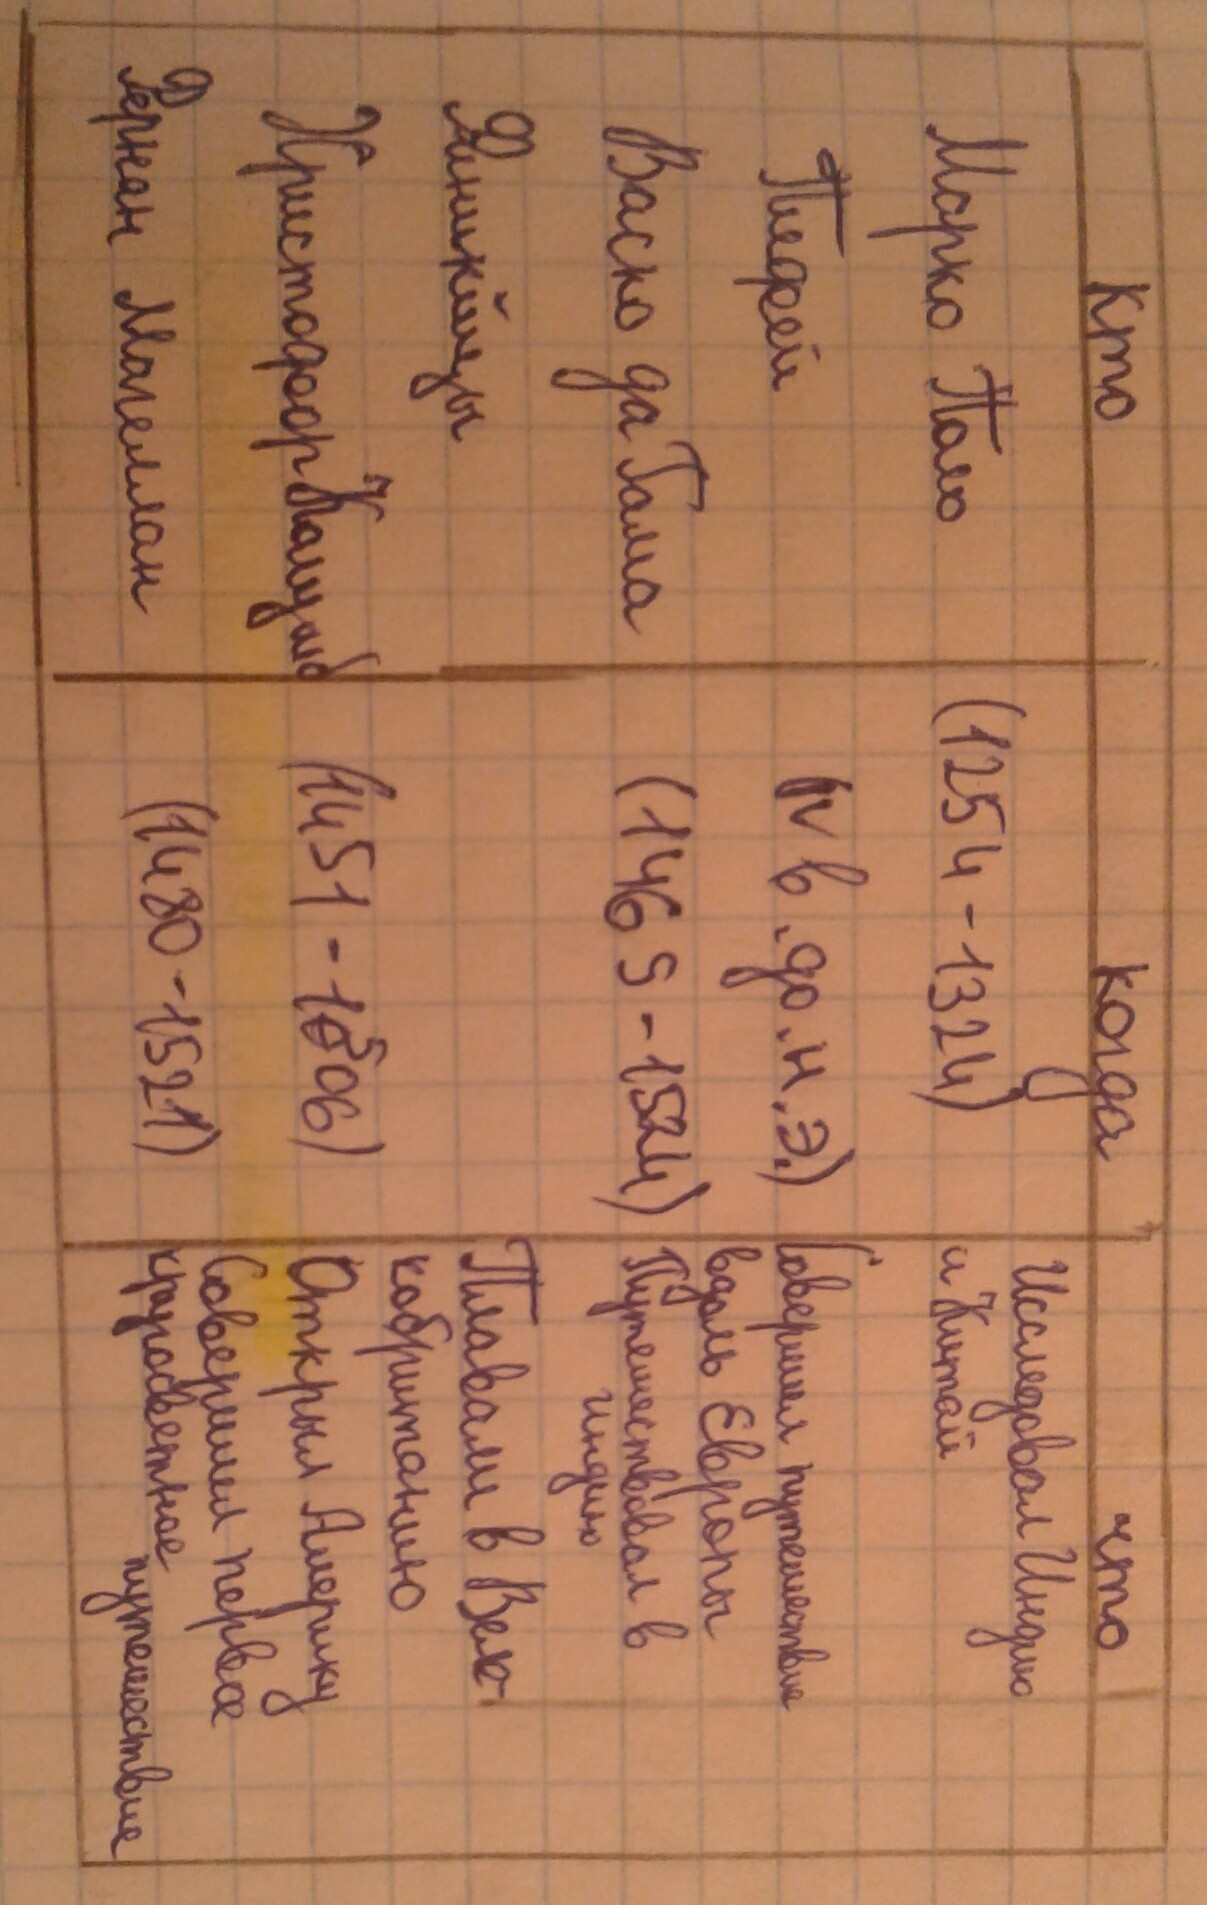 Кто когда что
Марко Поло (1254-1324) Исследовал Индию
и Китай
Пифей IV в.до.н.э.) Совершил путешествие
вдоль Европы
Васко да Гама (1465-1524) Путешествовал в
индию
Финикийцы Плавали в Вели-
кобританию
Христофор Колумб (1451-1506) Открыл Америку
Фернан Магеллан (1480-1521) Совершил первое
кругосветное путешествие